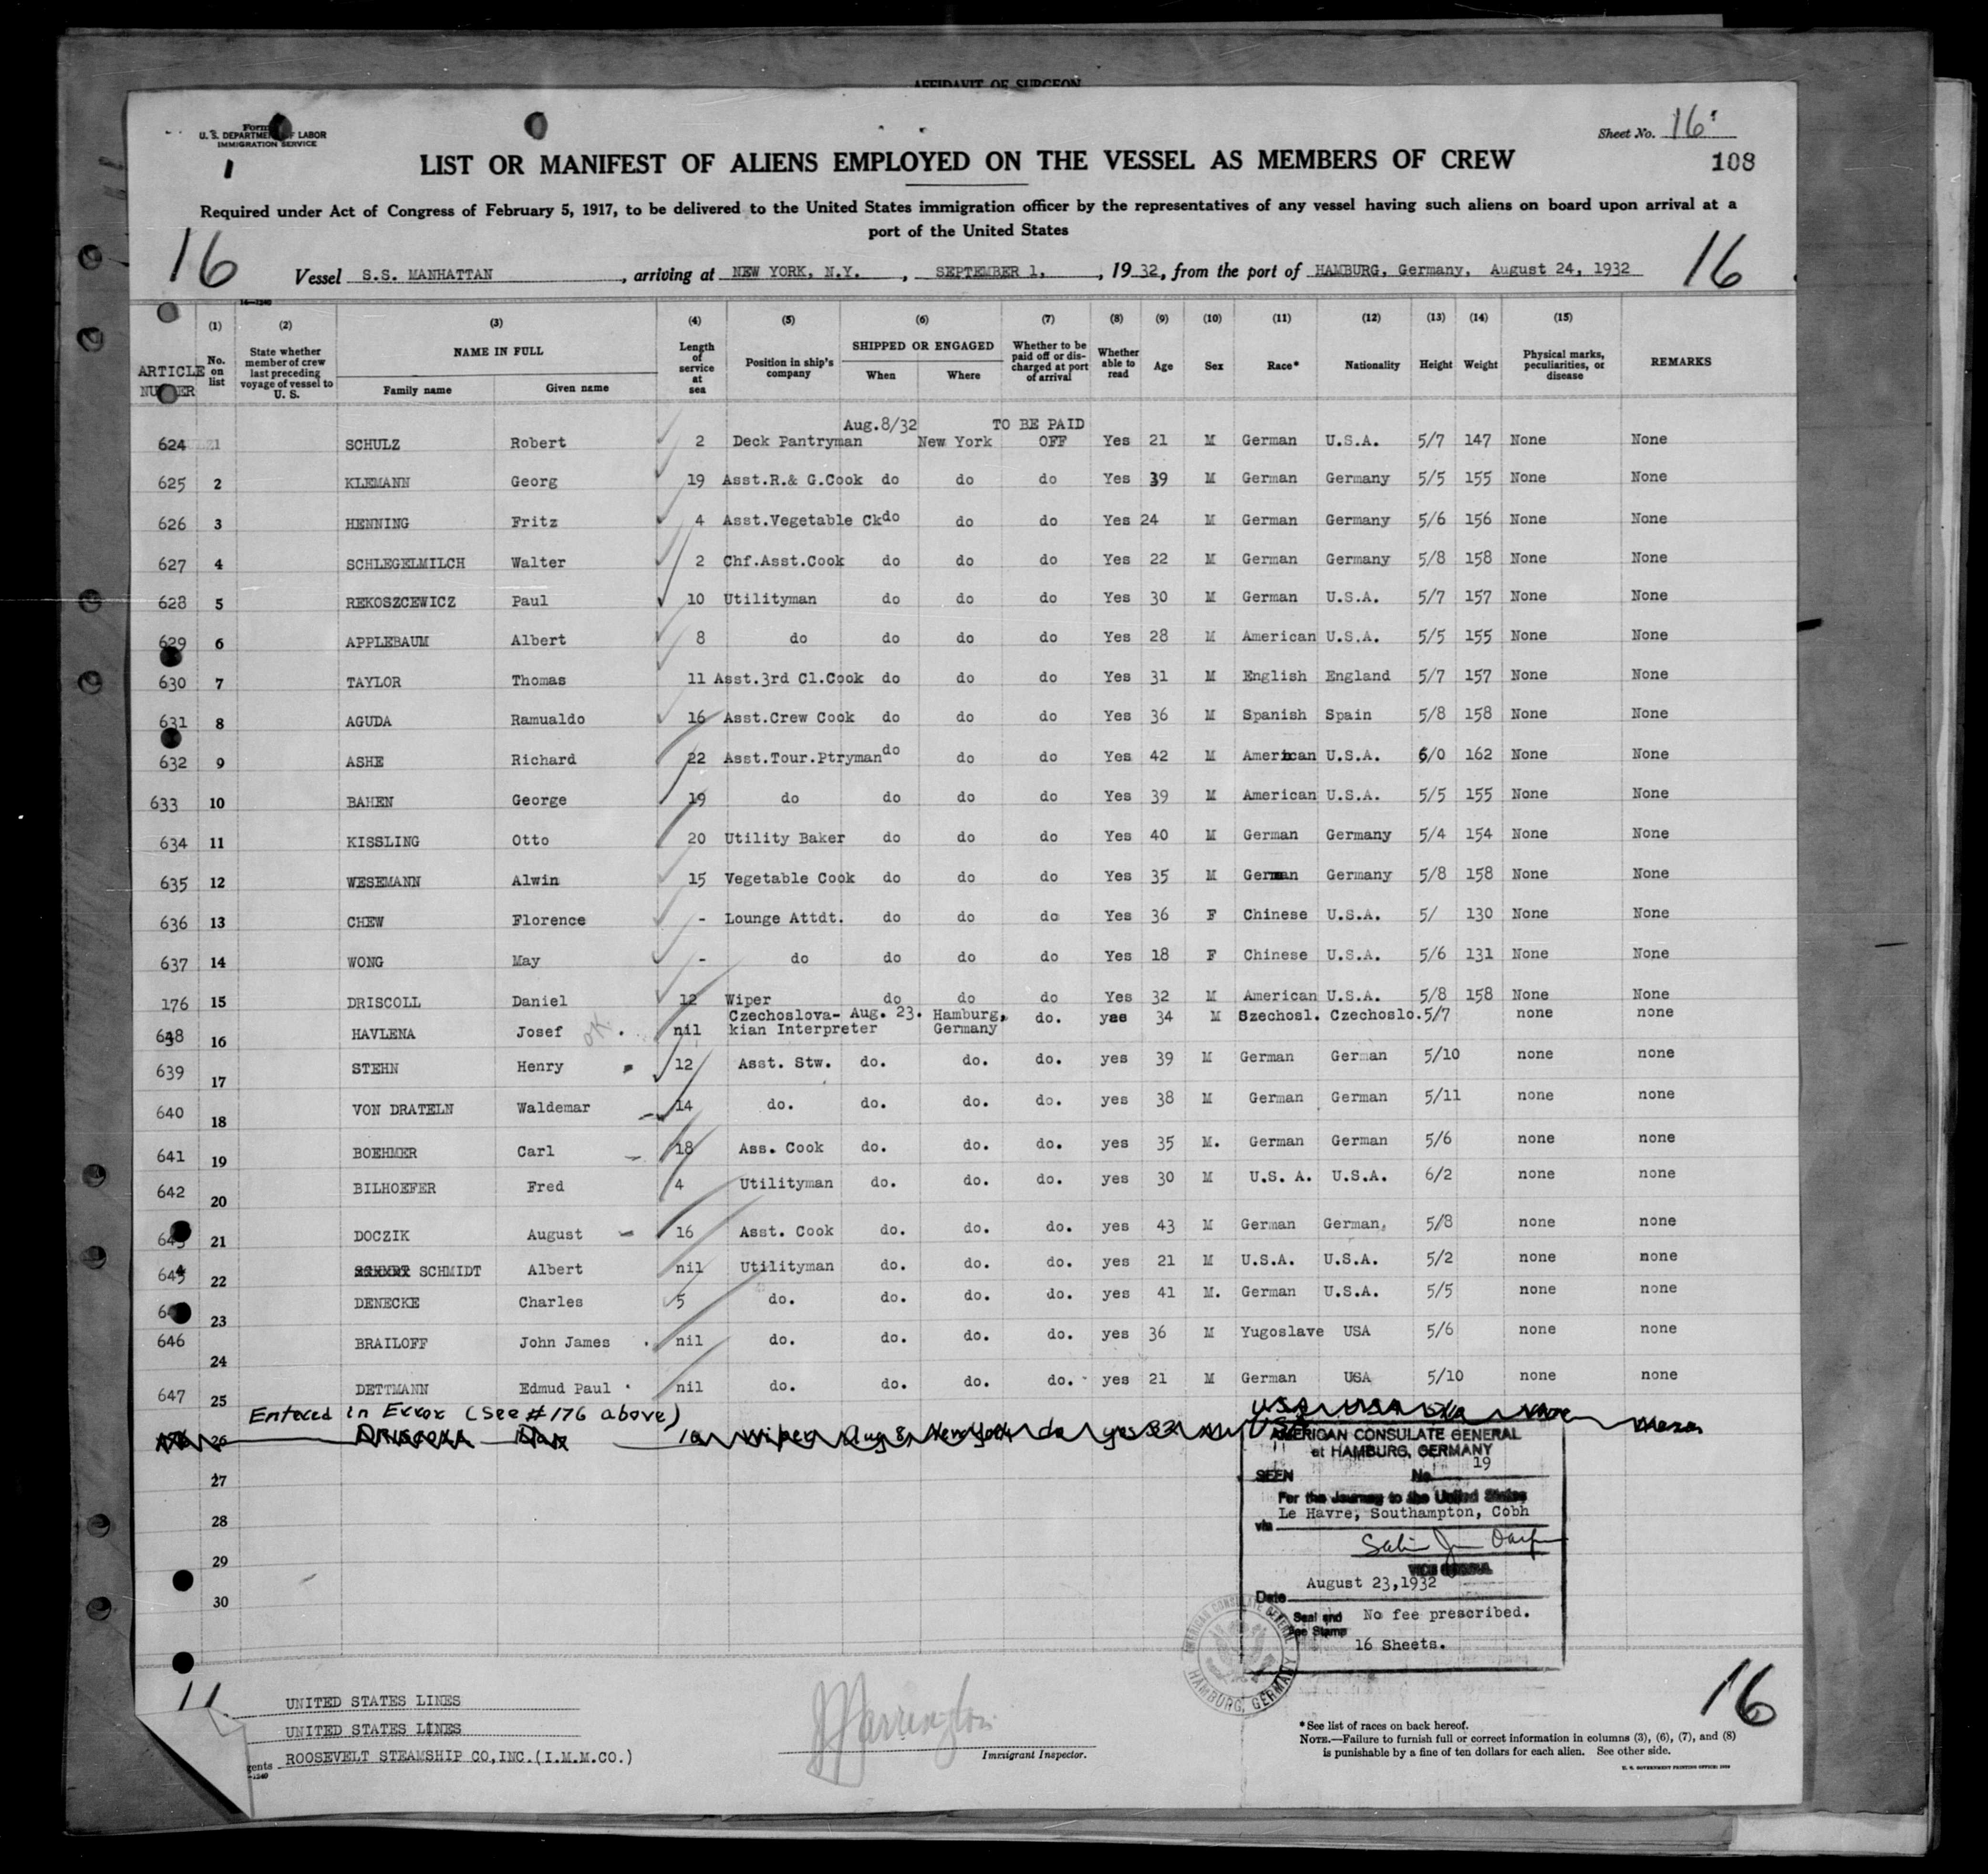 AFFIDAVIT OF SURGEON
Form
U. S. DEPARTMENT OF LABOR
IMMIGRATION SERVICE
Sheet No. 16
108
LIST OR MANIFEST OF ALIENS EMPLOYED ON THE VESSEL AS MEMBERS OF CREW
Required under Act of Congress of February 5, 1917, to be delivered to the United States immigration officer by the representatives of any vessel having such aliens on board upon arrival at a
port of the United States
16
Vessel S.S. MANHATTAN , arriving at NEW YORK, N.Y. , SEPTEMBER 1, , 1932, from the port of HAMBURG, Germany, August 24, 1932
16
(1) (2) (3) (4) (5) (6) (7) (8) (9) (10) (11) (12) (13) (14) (15)
ARTICLE NUMBER No. on list State whether member of crew last preceding voyage of vessel to U. S. NAME IN FULL Family name Given name Length of service at sea Position in ship's company SHIPPED OR ENGAGED When Where Whether to be paid off or discharged at port of arrival Whether able to read Age Sex Race* Nationality Height Weight Physical marks, peculiarities, or disease REMARKS
Aug.8/32 TO BE PAID
624 1 SCHULZ Robert 2 Deck Pantryman New York OFF Yes 21 M German U.S.A. 5/7 147 None None
625 2 KLEMANN Georg 19 Asst.R.& G.Cook do do do Yes 39 M German Germany 5/5 155 None None
626 3 HENNING Fritz 4 Asst.Vegetable Ck do do do Yes 24 M German Germany 5/6 156 None None
627 4 SCHLEGELMILCH Walter 2 Chf.Asst.Cook do do do Yes 22 M German Germany 5/8 158 None None
628 5 REKOSZCEWICZ Paul 10 Utilityman do do do Yes 30 M German U.S.A. 5/7 157 None None
629 6 APPLEBAUM Albert 8 do do do do Yes 28 M American U.S.A. 5/5 155 None None
630 7 TAYLOR Thomas 11 Asst.3rd Cl.Cook do do do Yes 31 M English England 5/7 157 None None
631 8 AGUDA Ramualdo 16 Asst.Crew Cook do do do Yes 36 M Spanish Spain 5/8 158 None None
632 9 ASHE Richard 22 Asst.Tour.Ptryman do do do Yes 42 M American U.S.A. 6/0 162 None None
633 10 BAHEN George 19 do do do do Yes 39 M American U.S.A. 5/5 155 None None
634 11 KISSLING Otto 20 Utility Baker do do do Yes 40 M German Germany 5/4 154 None None
635 12 WESEMANN Alwin 15 Vegetable Cook do do do Yes 35 M German Germany 5/8 158 None None
636 13 CHEW Florence - Lounge Attdt. do do do Yes 36 F Chinese U.S.A. 5/ 130 None None
637 14 WONG May - do do do do Yes 18 F Chinese U.S.A. 5/6 131 None None
176 15 DRISCOLL Daniel 12 Wiper do do do Yes 32 M American U.S.A. 5/8 158 None None
Czechoslova- Aug. 23. Hamburg, do. yes 34 M Szechosl. Czechoslo. 5/7 none none
638 16 HAVLENA Josef OK. nil kian Interpreter Germany
639 17 STEHN Henry 12 Asst. Stw. do. do. do. yes 39 M German German 5/10 none none
640 18 VON DRATELN Waldemar 14 do. do. do. do. yes 38 M German German 5/11 none none
641 19 BOEHMER Carl 18 Ass. Cook do. do. do. yes 35 M. German German 5/6 none none
642 20 BILHOEFER Fred 4 Utilityman do. do. do. yes 30 M U.S. A. U.S.A. 6/2 none none
21 DOCZIK August 16 Asst. Cook do. do. do. yes 43 M German German, 5/8 none none
22 SCHMIDT Albert nil Utilityman do. do. do. yes 21 M U.S.A. U.S.A. 5/2 none none
23 DENECKE Charles 5 do. do. do. do. yes 41 M. German U.S.A. 5/5 none none
646 24 BRAILOFF John James nil do. do. do. do. yes 36 M Yugoslave USA 5/6 none none
647 25 DETTMANN Edmud Paul nil do. do. do. do. yes 21 M German USA 5/10 none none
Entered in Error (See #176 above)
26 Driscoll Dan Wiper Aug 8 New York do yes 32 M USA USA None
27
28
29
30
AMERICAN CONSULATE GENERAL
at HAMBURG, GERMANY
SEEN No. 19
For the Journey to the United States
via Le Havre, Southampton, Cobh
VICE CONSUL
Date August 23, 1932
Seal and Fee Stamp No fee prescribed.
16 Sheets.
AMERICAN CONSULATE GENERAL HAMBURG, GERMANY
16
UNITED STATES LINES
UNITED STATES LINES
gents ROOSEVELT STEAMSHIP CO,INC.(I.M.M.CO.)
Immigrant Inspector.
*See list of races on back hereof.
NOTE.—Failure to furnish full or correct information in columns (3), (6), (7), and (8)
is punishable by a fine of ten dollars for each alien. See other side.